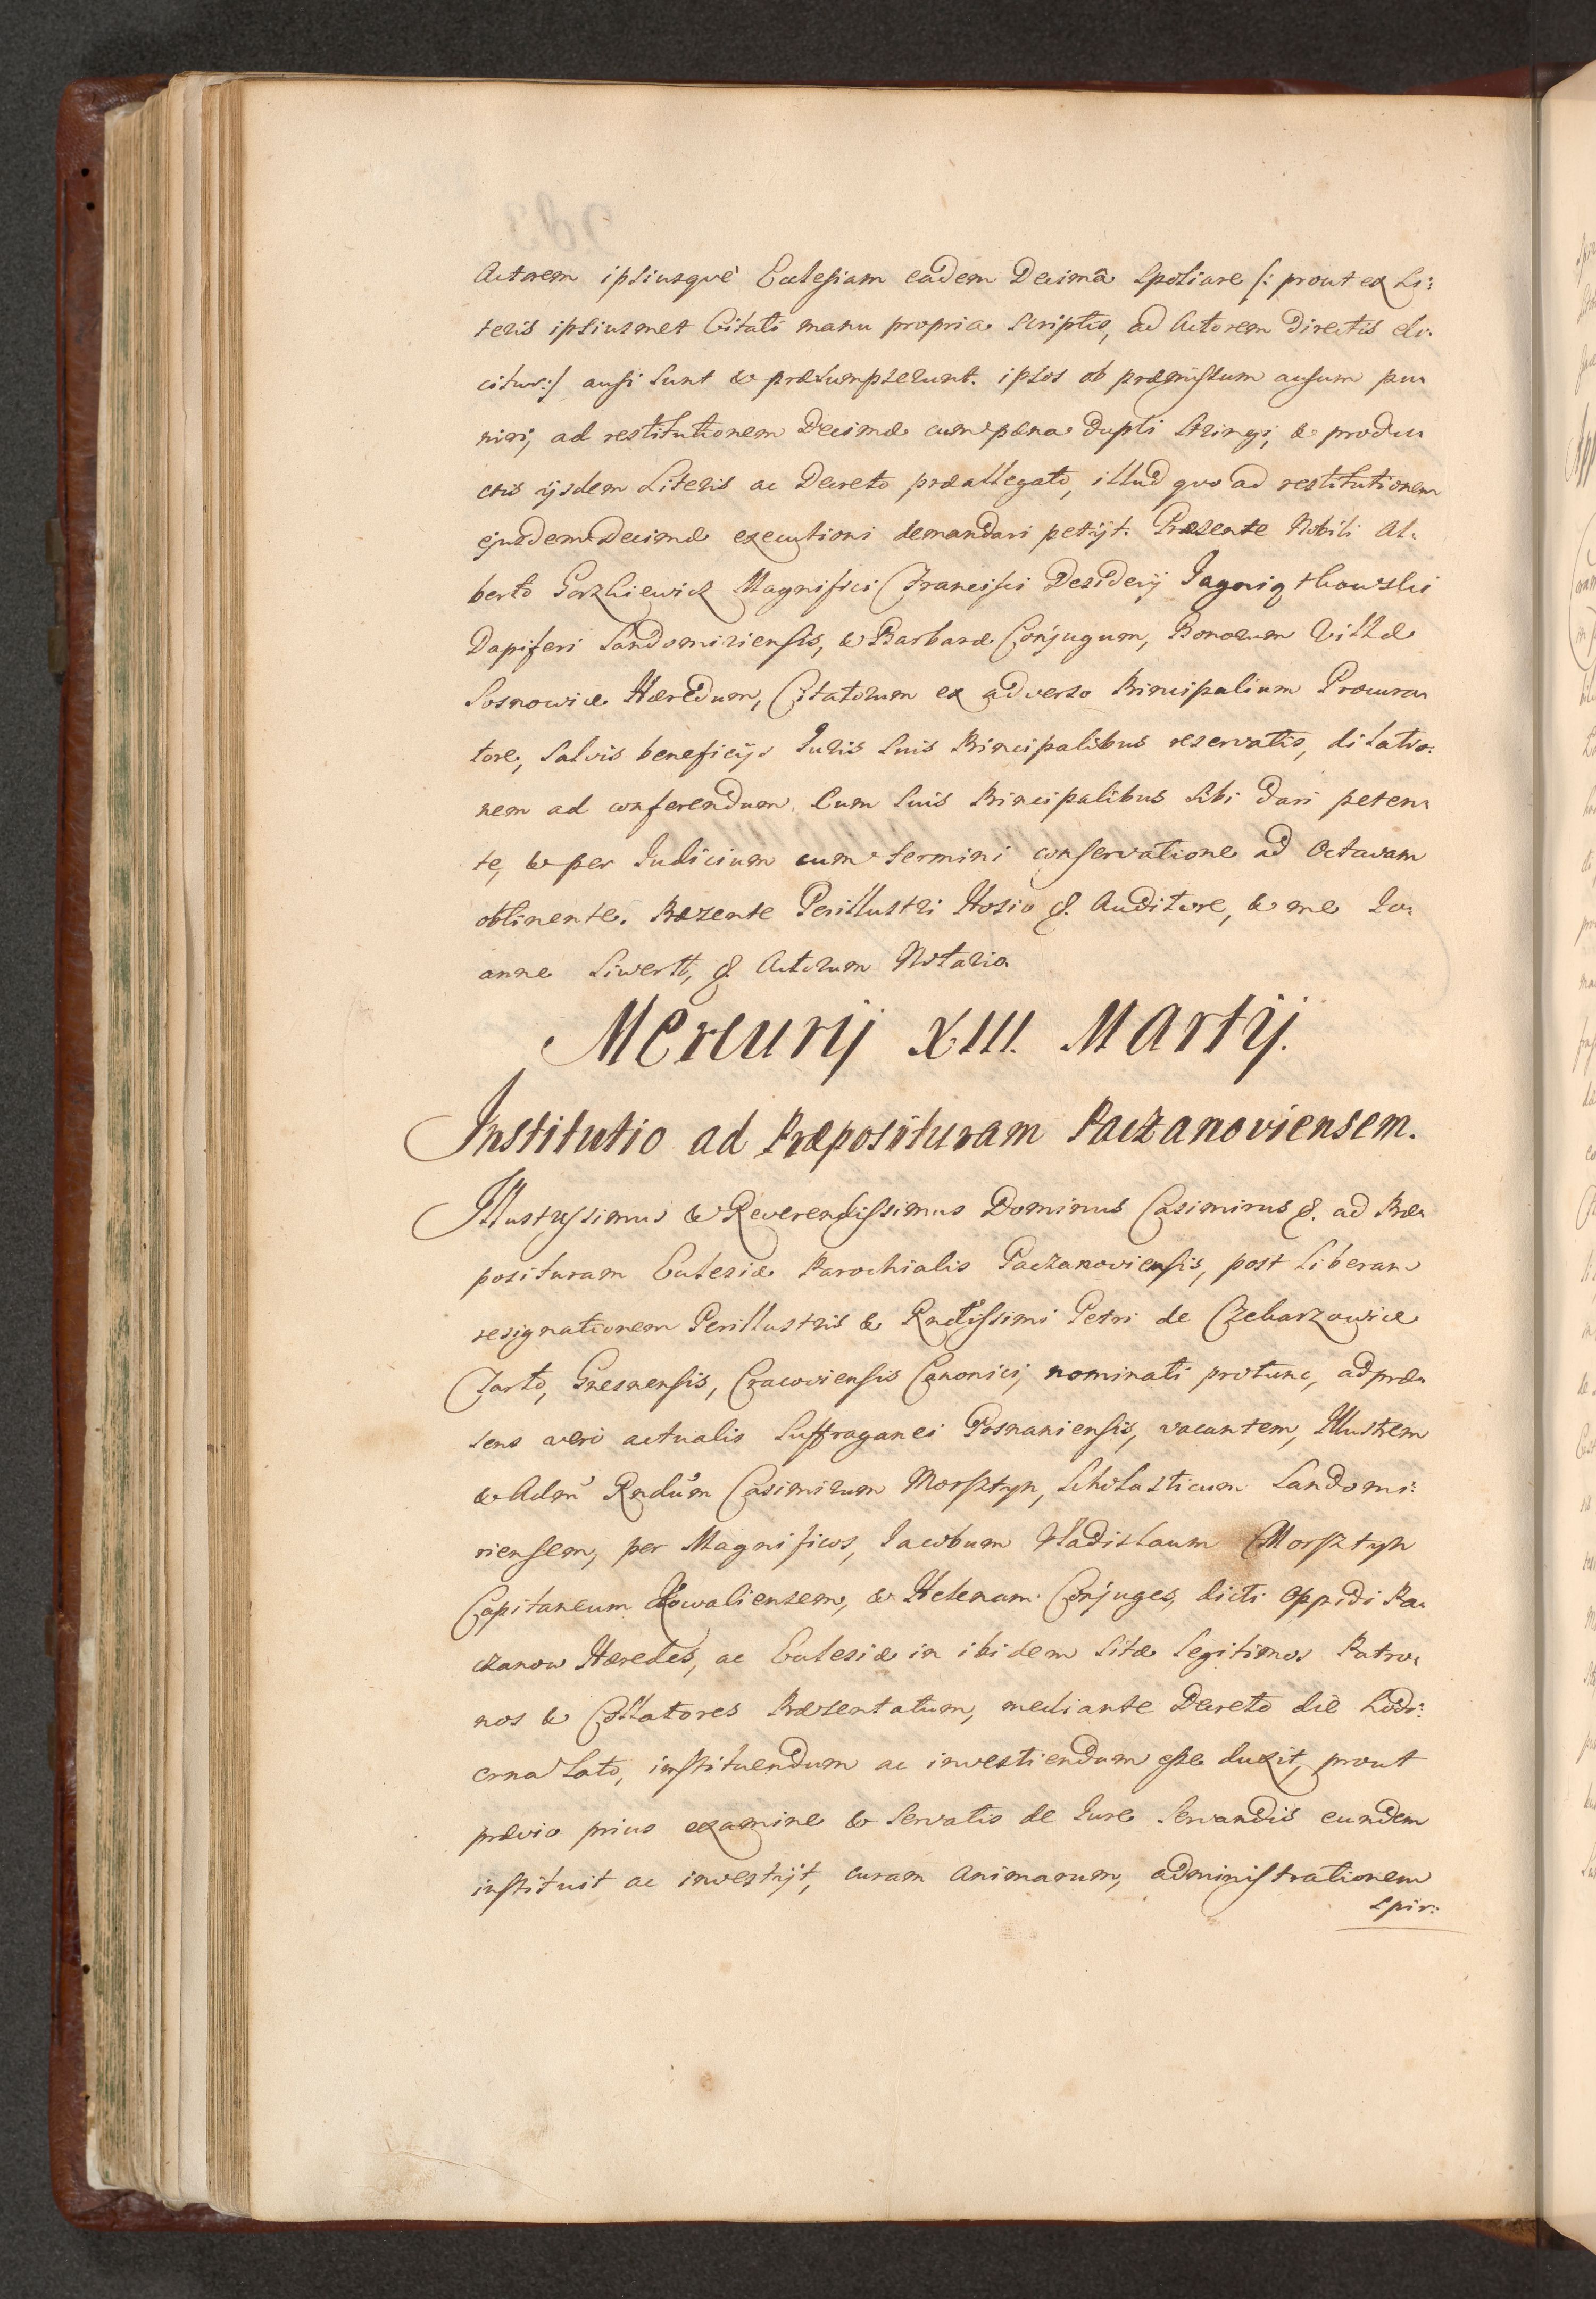 Actorem ipsiusquè Ecclesiam eadem Decimâ spoliare /: prout ex Li:
teris ipsiusmet Citati manu propria scriptis, ad Actorem directis do:
citur:/ ausi sunt & præsumpserunt. ipsos ob præmissum ausum pu:
niri, ad restitutionem Decimæ cum pæna dupli stringi, & produ:
ctis ijsdem Literis ac Decreto præallegato, illud quo ad restitutionem
ejusdem Decimæ executioni demandari petijt. Præsente Nobili Al:
berto Gorzkiewicz Magnifici Francisci Desiderij
Dapiferi Sandomiriensis, & Barbaræ Conjugum, Bonorum Villæ
Sosnowice Hæredum, Citatorum ex adverso Principalium Procura:
tore, salvis beneficijs Iuris suis Principalibus reservatis, dilatio:
nem ad conferendum cum suis Principalibus sibi dari peten:
te, & per Iudicium cum termini conservatione ad Octavam
obtinente. Præsente Perillustri Hosio &. Auditore, & me Io:
anne Siwertt, &. Actorum Notario.
Mercurij XIII. Martij.
Institutio ad Præposituram Paczanoviensem.
Illustrissimus & Reverendissimus Dominus Casimirus &. ad Præ:
posituram Ecclesiæ Parochialis Paczanoviensis, post liberam
resignationem Perillustris & Rndissimi Petri de
Tarło, Gnesnensis, Cracoviensis Canonici, nominati protunc, ad præ:
sens verò actualis Suffraganei Posnaniensis, vacantem, Illustrem
& Adm Rndum Casimirum Morsztyn, Scholasticum Sandomi:
riensem, per Magnificos, Iacobum Władislaum Morsztyn
Capitaneum Kowaliensem, & Helenam Conjuges, dicti Oppidi Pa:
czanow Hæredes, ac Ecclesiæ in ibidem sitæ legitimos Patro:
nos & Collatores Præsentatum, mediante Decreto die hodi:
erna lato, instituendum ac investiendum esse duxit, prout
prævio prius examine & servatis de Iure servandis eundem
instituit ac investijt, curam animarum, administrationem
spir: